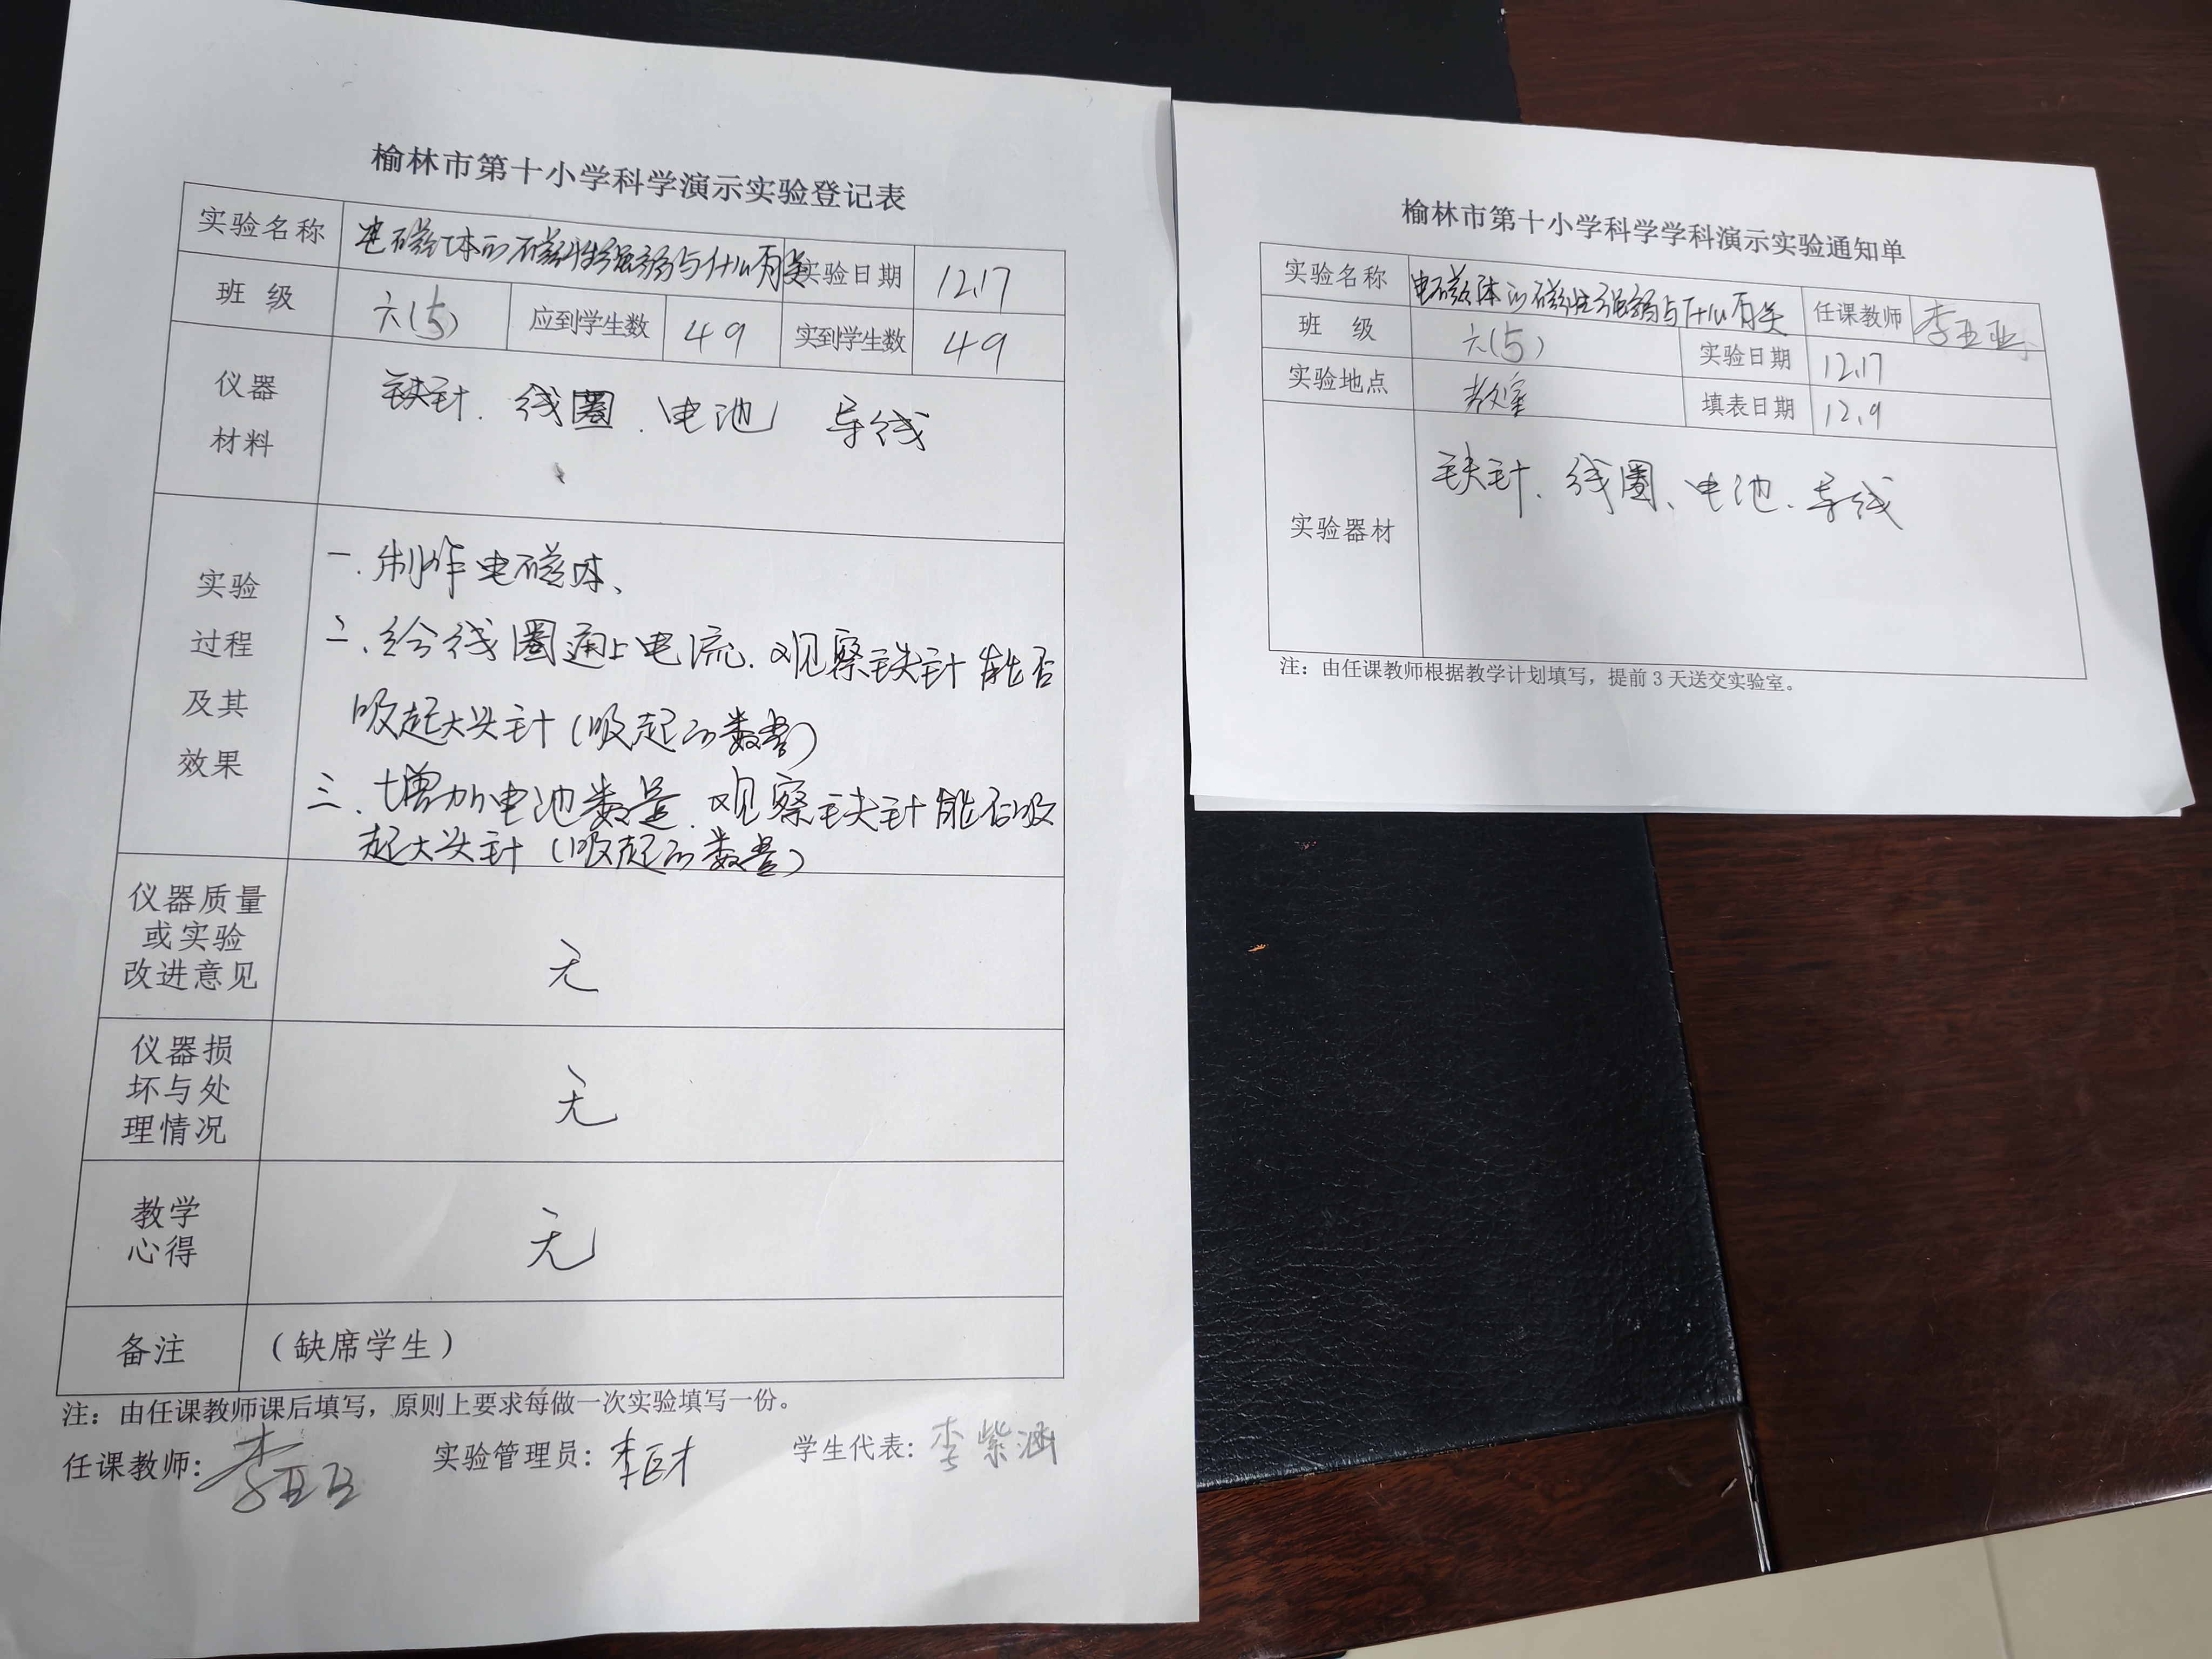 榆林市第十小学科学演示实验登记表
实验名称 电磁体的磁性强弱与什么有关 实验日期 12.17
班 级 六(5) 应到学生数 49 实到学生数 49
仪器
材料
铁钉、线圈、电池 导线
实验
过程
及其
效果
一、制作电磁体、
二、给线圈通上电流、观察铁钉能否
吸起大头针(吸起的数量)
三、增加电池数量、观察铁钉能否吸
起大头针(吸起的数量)
仪器质量
或实验
改进意见
无
仪器损
坏与处
理情况
无
教学
心得
无
备注 (缺席学生)
注：由任课教师课后填写，原则上要求每做一次实验填写一份。
任课教师： 实验管理员： 学生代表：李紫涵
榆林市第十小学科学学科演示实验通知单
实验名称 电磁体的磁性强弱与什么有关 任课教师
班 级 六(5) 实验日期 12.17
实验地点 教室 填表日期 12.9
实验器材 铁钉、线圈、电池、导线
注：由任课教师根据教学计划填写，提前3天送交实验室。